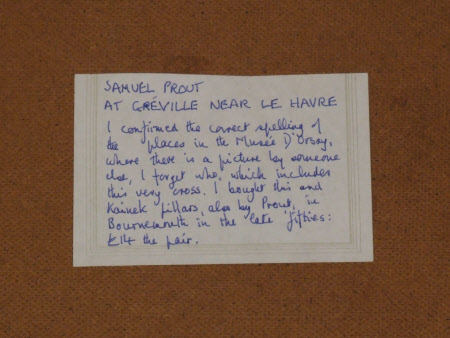 SAMUEL PROUT
AT GRÉVILLE NEAR LE HAVRE
I confirmed the correct spelling of
the places in the Musée D'Orsay,
where there is a picture by someone
else, I forget who, which includes
this very cross. I bought this and
Kainek pillars, also by Prout, in
Bournemouth in the late 'fifties:
£14 the pair.